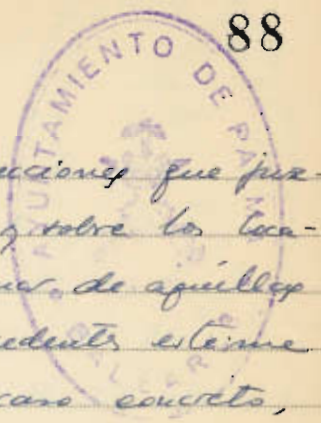 88
AYUNTAMIENTO DE PALMA
BALEARES
uciones que juz-
y sobre los tra-
de aquéllas
estime
caso concreto,